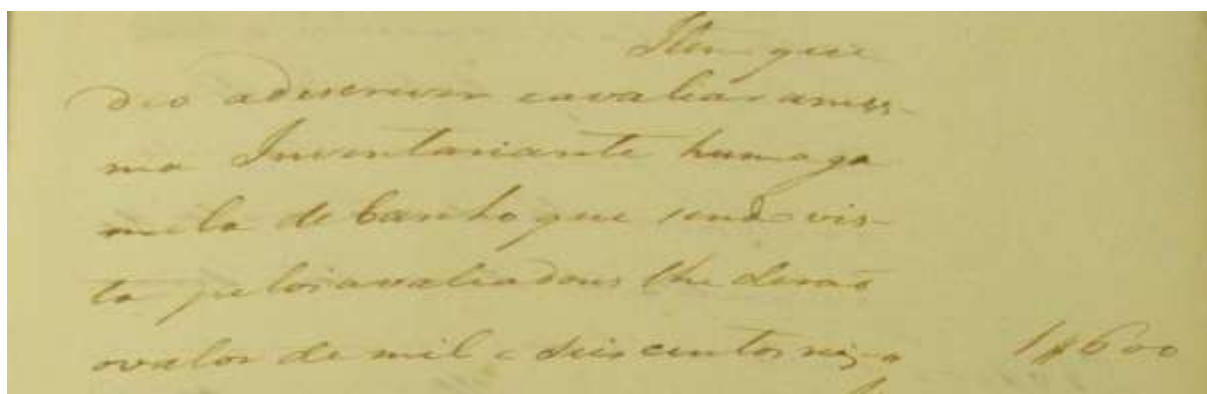 Item que
deo adescrever eavaliar ames-
ma Inventariante huma ga
mela de banho que sendo vis-
ta pelos avaliadores lhe derão
ovalor de mil e seis centos reis 1$600